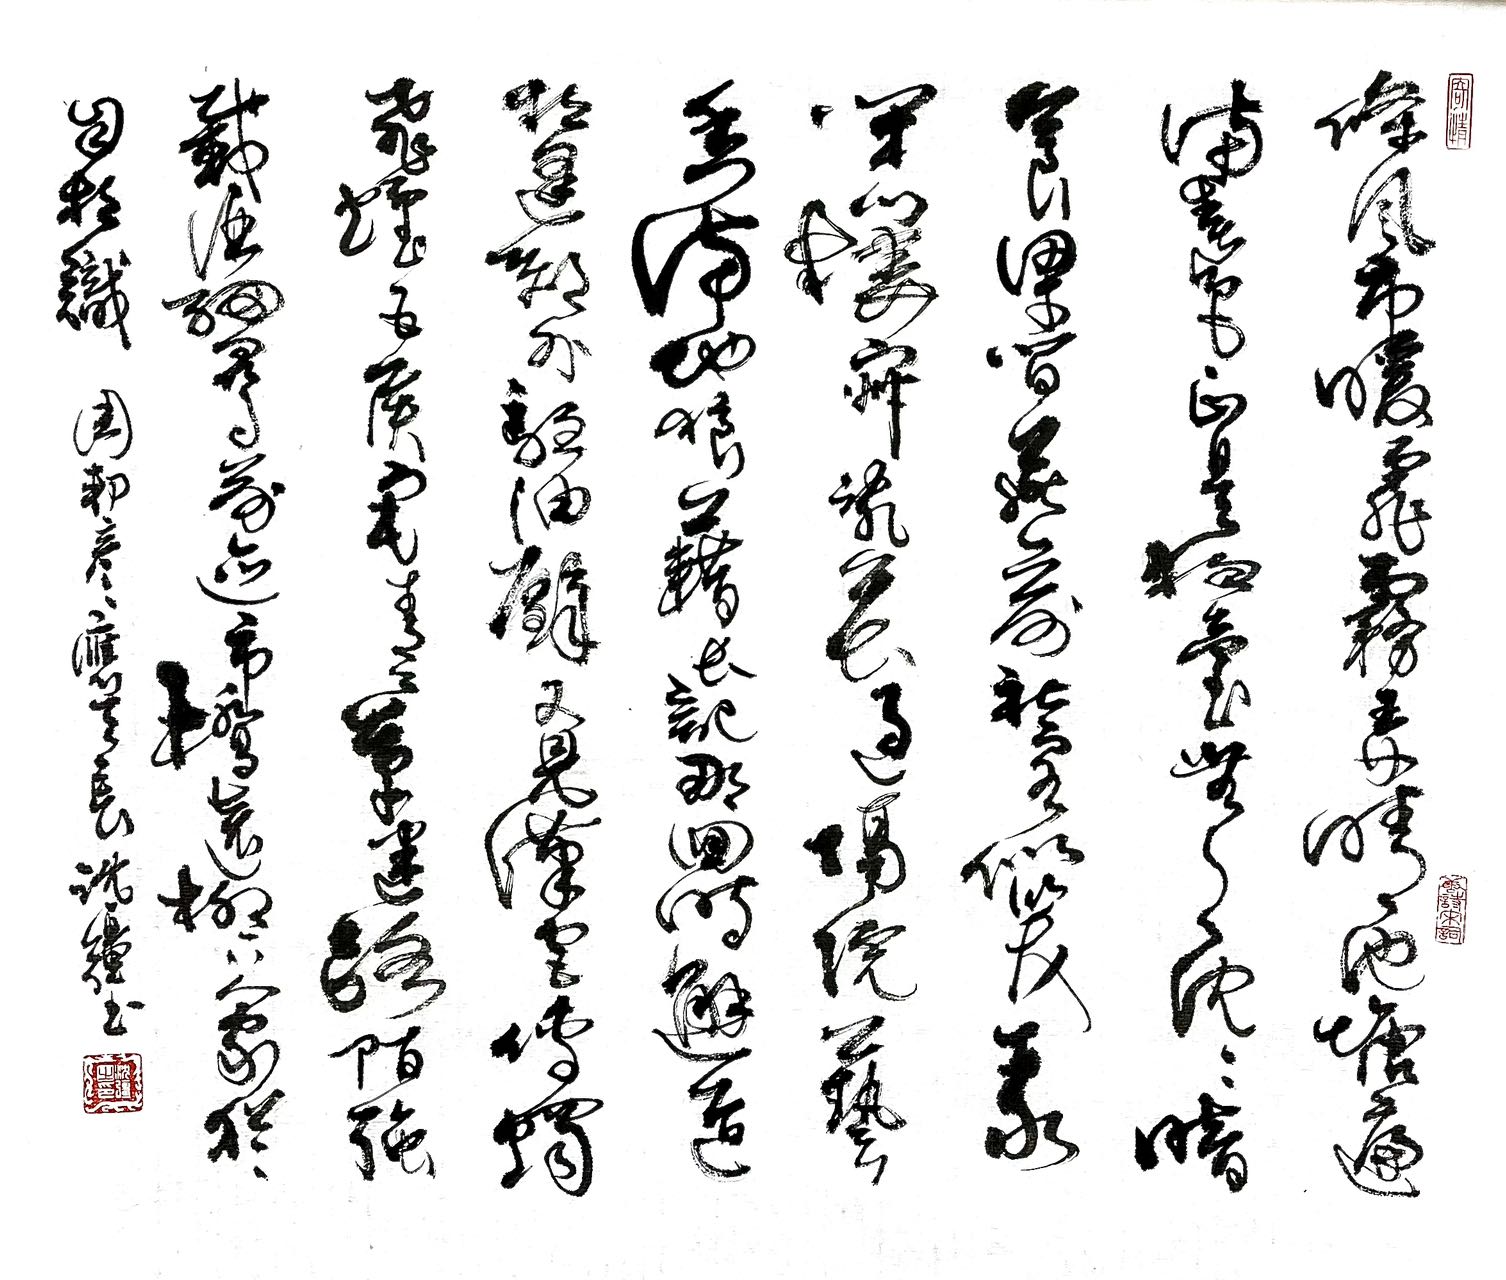 條風布暖霏霧弄晴池塘遍
滿春色正是夜臺無月沈沈暗
寒食梁間燕前社客似笑我
閉門愁寂亂花過隔院藝
香滿地狼藉長記那回時邂逅
相逢郊外駐油壁又見漢宮傳燭
飛煙五侯宅青青草迷路陌強
載酒細尋前迹市橋遠柳下人家猶
自相識 周邦彦應天長 沈 書